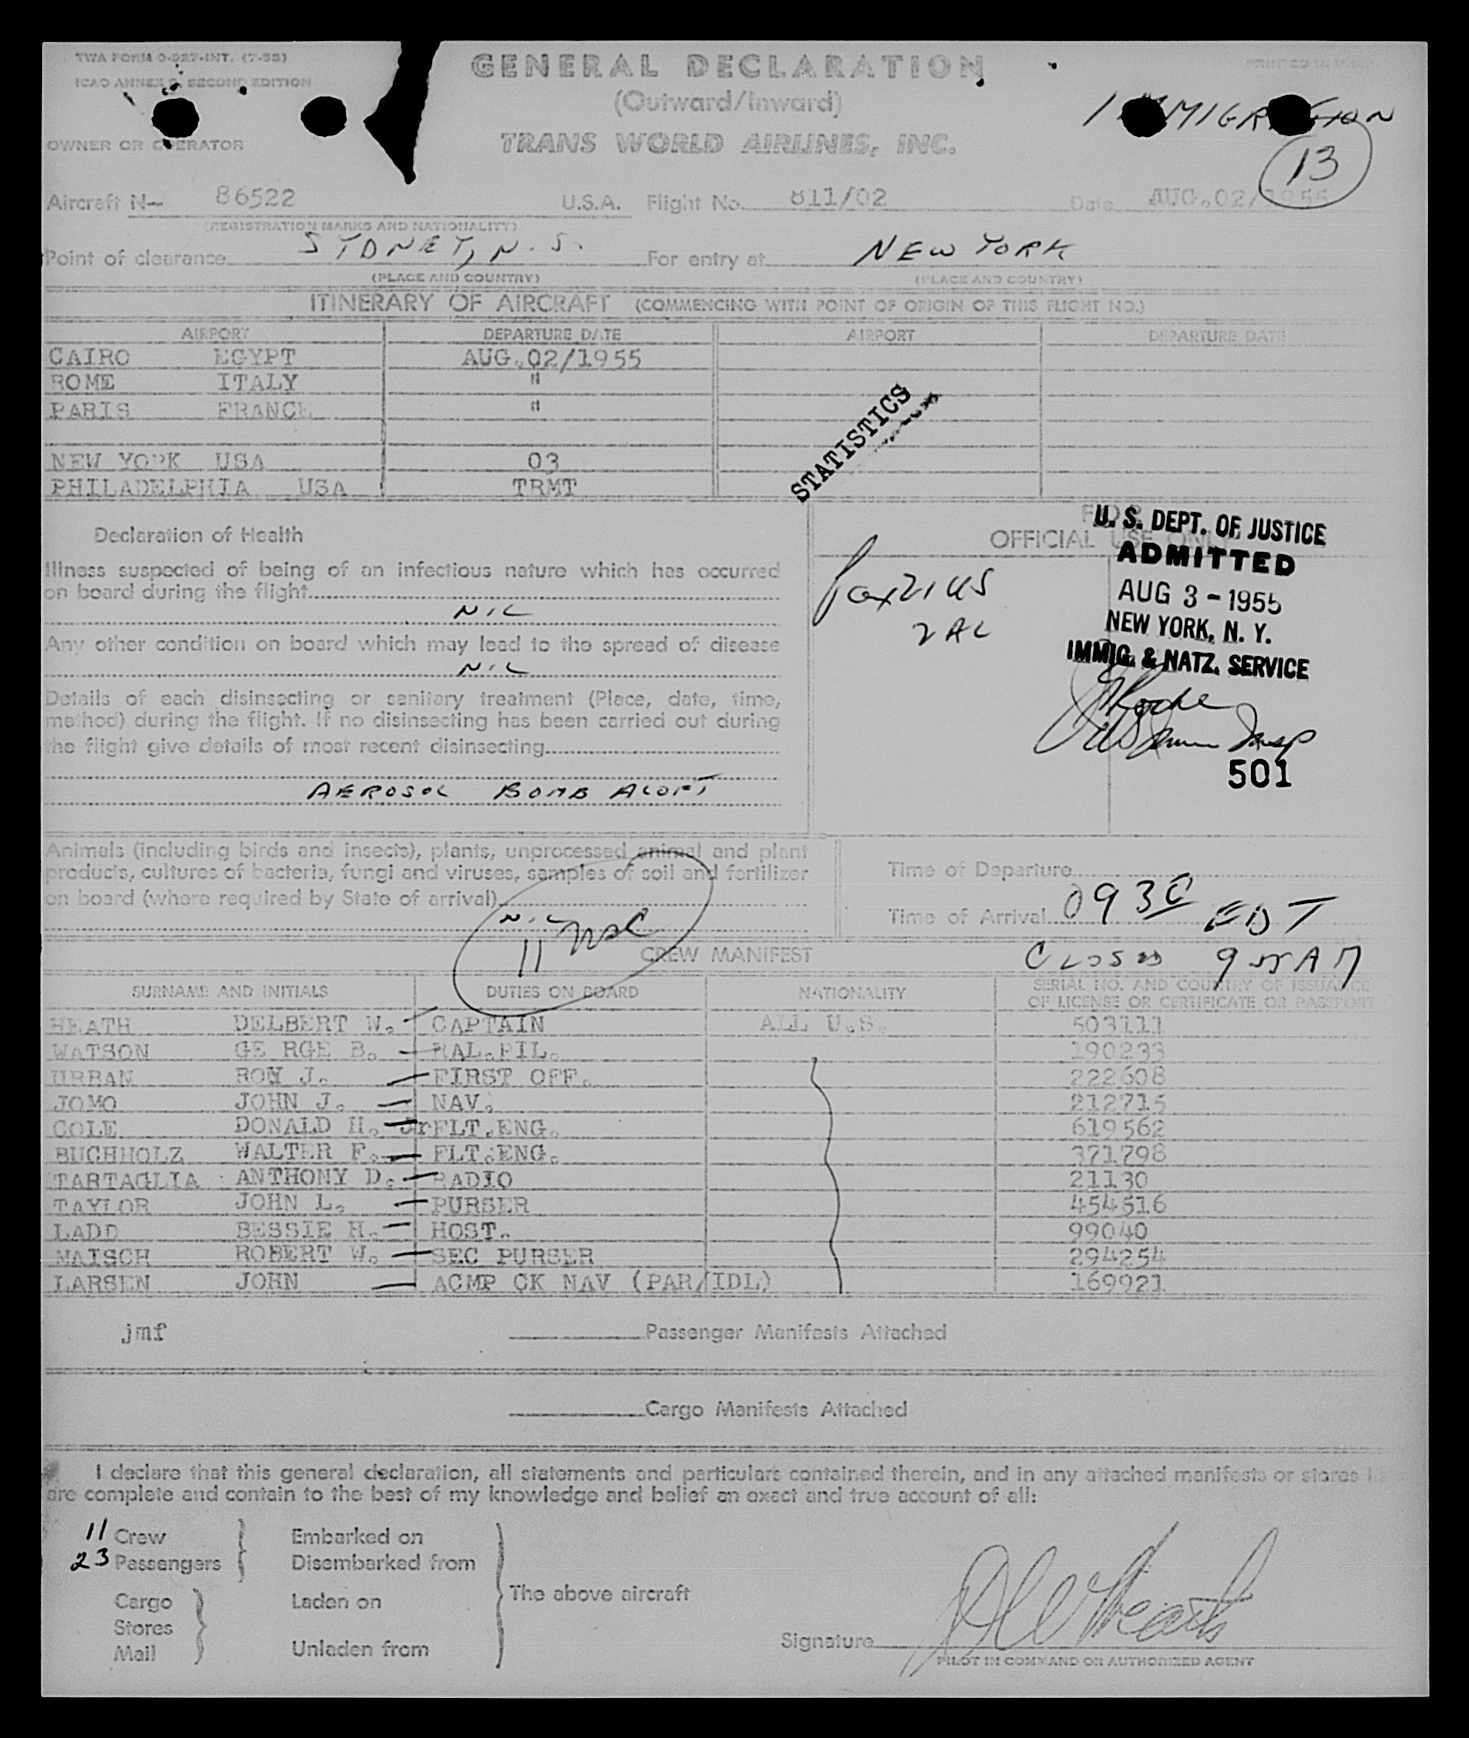 TWA FORM 0-027-INT. (7-55)
ICAO ANNEX 9, SECOND EDITION
GENERAL DECLARATION
(Outward/Inward)
IMMIGRATION
OWNER OR OPERATOR
TRANS WORLD AIRLINES, INC.
13
Aircraft N- 86522 U.S.A. Flight No. 811/02 Date AUG.02/1955
(REGISTRATION MARKS AND NATIONALITY)
Point of clearance SYDNEY, N.S. For entry at NEW YORK
(PLACE AND COUNTRY) (PLACE AND COUNTRY)
ITINERARY OF AIRCRAFT (COMMENCING WITH POINT OF ORIGIN OF THIS FLIGHT NO.)
AIRPORT DEPARTURE DATE AIRPORT DEPARTURE DATE
CAIRO EGYPT AUG.02/1955
ROME ITALY "
PARIS FRANCE "
NEW YORK USA 03
PHILADELPHIA USA TRMT
STATISTICS
Declaration of Health
Illness suspected of being of an infectious nature which has occurred
on board during the flight
NIL
Any other condition on board which may lead to the spread of disease
NIL
Details of each disinsecting or sanitary treatment (Place, date, time,
method) during the flight. If no disinsecting has been carried out during
the flight give details of most recent disinsecting
AEROSOL BOMB ALOFT
FOR
OFFICIAL USE ONLY
U. S. DEPT. OF JUSTICE
ADMITTED
AUG 3 - 1955
NEW YORK, N. Y.
IMMIG. & NATZ. SERVICE
501
21 US
2 AL
Animals (including birds and insects), plants, unprocessed animal and plant
products, cultures of bacteria, fungi and viruses, samples of soil and fertilizer
on board (where required by State of arrival)
NIL
11
Time of Departure
Time of Arrival 0930 EDT
CREW MANIFEST
CLOSED 955 AM
SURNAME AND INITIALS DUTIES ON BOARD NATIONALITY SERIAL NO. AND COUNTRY OF ISSUANCE
OF LICENSE OR CERTIFICATE OR PASSPORT
HEATH DELBERT W. CAPTAIN ALL U.S. 503111
WATSON GE RGE B. HAL.PIL. 190233
URBAN ROM J. FIRST OFF. 222608
JOMO JOHN J. NAV. 212715
COLE DONALD H. Jr FLT.ENG. 619562
BUCHHOLZ WALTER F. FLT.ENG. 371798
TARTAGLIA ANTHONY D. RADIO 21130
TAYLOR JOHN L. PURSER 454516
LADD BESSIE H. HOST. 99040
MAISCH ROBERT W. SEC PURSER 294254
LARSEN JOHN ACMP CK NAV (PAR/IDL) 169921
jmf Passenger Manifests Attached
Cargo Manifests Attached
I declare that this general declaration, all statements and particulars contained therein, and in any attached manifests or stores
are complete and contain to the best of my knowledge and belief an exact and true account of all:
11 Crew Embarked on
23 Passengers Disembarked from
The above aircraft
Cargo Laden on
Stores
Mail Unladen from
Signature D W Heath
PILOT IN COMMAND OR AUTHORIZED AGENT